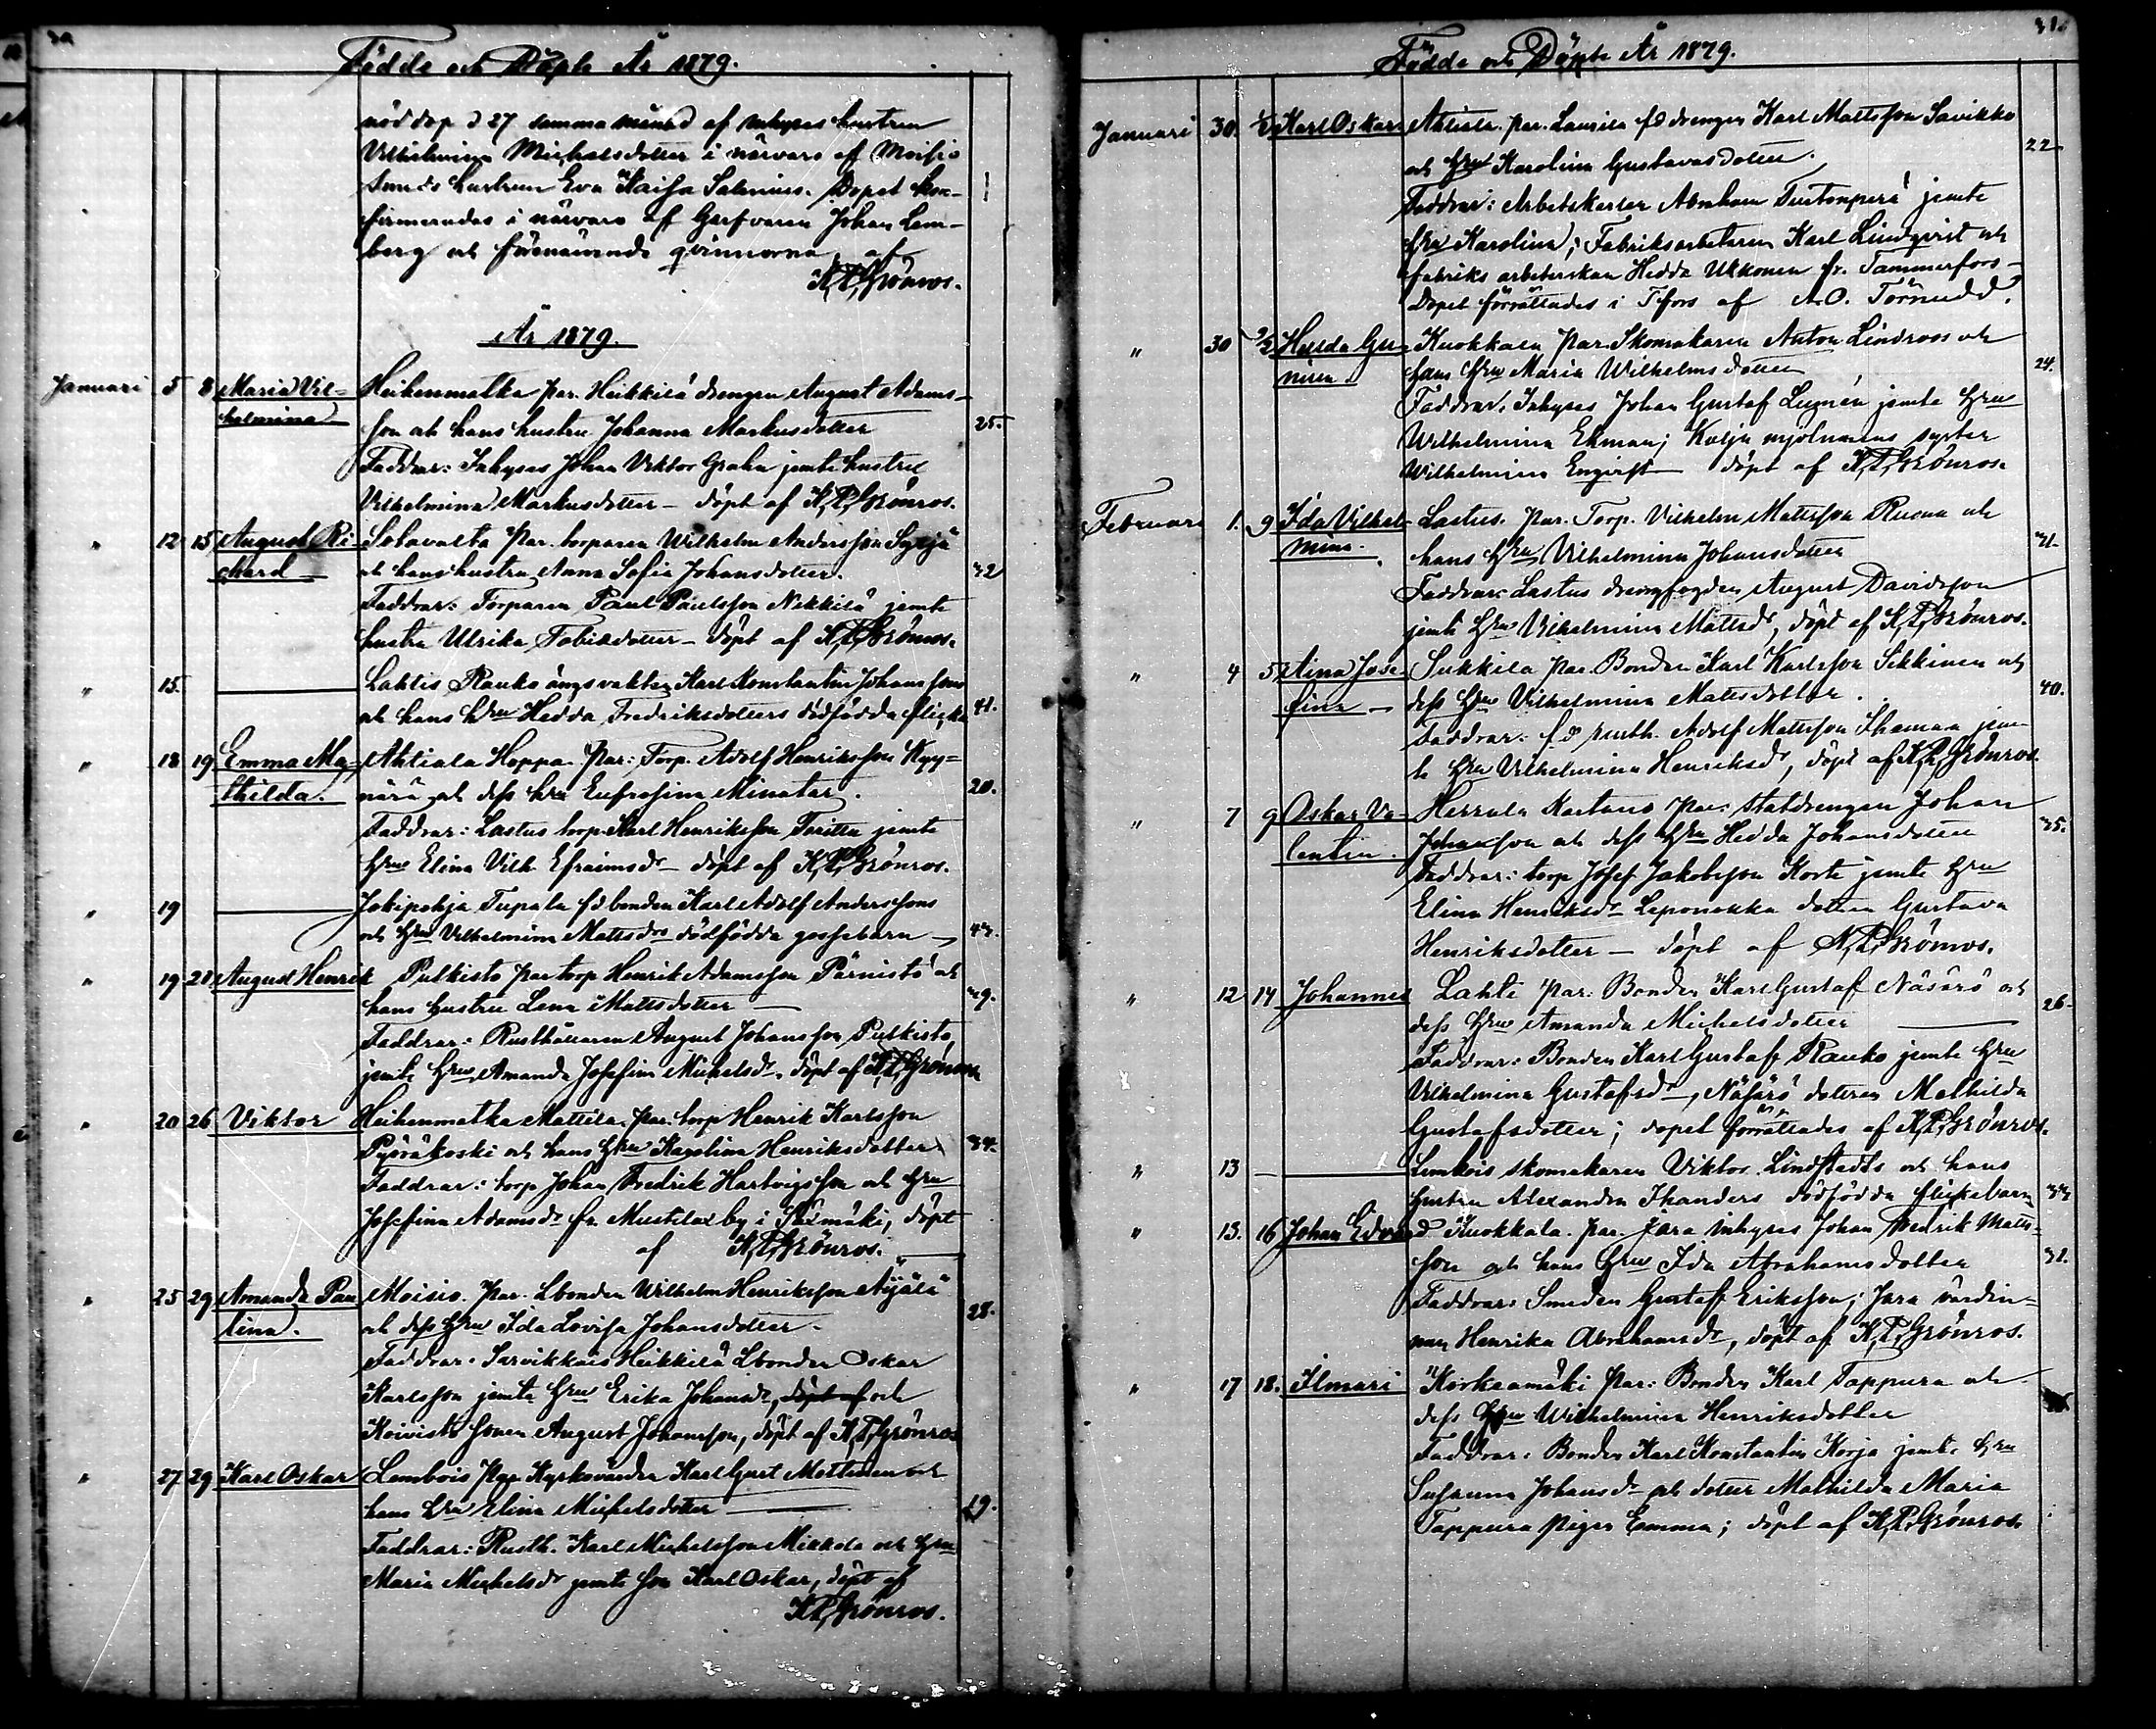 Födde och Döpte År 1879.
nöddop d 27 samma månad af inhyses hustrun
Vilhelmina Michelsdotter i närvaro af Moisio
smeds hustrun Eva Kaisa Salenius. Dopet kon-
firmerades i närvaro af Garfvaren Johan Lem-
berg och förenämnde qvinnorna af
K.P. Grönros.
År 1879.
Januari 5 8 Maria Vil- Heikenmatka par. Heikkilä drengen August Adams-
helmina son och hans hustru Johanna Markusdotter 25.
Faddrar: Inhyses Johan Viktor Grahn jemte hustru
Vilhelmina Markusdotter - döpt af K.P. Grönros.
" 12 15 August Ri- Solavalta par. torparen Wilhelm Andersson Syrjä
chard och hans hustru Anna Sofia Johansdotter. 32
Faddrar: Torparen Paul Paulsson Nikkilä jemte
hustru Ulrika Tobiasdotter - döpt af K.P. Grönros.
" 15. Lahtis Rauko ängsvakten Karl Konstantin Johanssons
och hans hru Hedda Fredriksdotters dödfödda flicka 41.
" 18 19 Emma Ma- Ahtiala Hoppa par: Torp. Adolf Henriksson Kyy-
thilda. närä och dess hru Eufrosina Minatar. 20.
Faddrar: Lastus torp. Karl Henriksson Toritta jemte
hru Elina Vilh. Efraimsdr - döpt af K.P. Grönros.
" 19 Jokipohja Tupala fd bonden Karl Adolf Anderssons
och hru Vilhelmina Mattsdrs dödfödda gossebarn 43.
" 19 20 August Henrik Pulkisto par torp Henrik Adamsson Pärnistö och
hans hustru Lena Mattsdotter 39.
Faddrar: Rusthållaren August Johansson Pulkisto,
jemte hru Amanda Josefina Michelsdr. döpt af K.P. Grönros
" 20 26 Viktor Heikenmatka Mattila. par. torp Henrik Karlsson
Pyöräkoski och hans hru Karolina Henriksdotter 34.
Faddrar: torp Johan Fredrik Hartvigsson och hru
Josefina Adamsdr fr. Mustila by i Sääxmäki, döpt
af K.P. Grönros.
" 25 29 Amanda Pau- Moisio. par. Lbonden Wilhelm Henriksson Äijälä
lina. och dess hru Ida Lovisa Johansdotter. 28.
Faddrar: Sarvikkais Heikkilä Lbonden Oskar
Karlsson jemte hru Erika Johansdr, döpt af och
Koivisto sonen August Johansson, döpt af K.P. Grönros
" 27 29 Karl Oskar Lembois par Kyrkovärden Karl Gust Mattinen och
hans hru Elina Michelsdotter 29.
Faddrar: Rusth. Karl Michelsson Mikkola och hru
Maria Michelsdr jemte son Karl Oskar, döpt af
K.P. Grönros.
Födde och Döpte År 1879.
Januari 30. Karl Oskar Ahtiala. par. Laurila fd drengen Karl Mattsson Savikko 22
och hru Karolina Gustavsdotter.
Faddrar: Arbetskarlen Abraham Tuetonperä jemte
hru Karolina; Fabriksarbetaren Karl Lindqvist och
fabriks arbeterskan Hedda Ukkonen fr. Tammerfors -
Dopet förrättades i Tfors af A.O. Törnudd.
" 30 2/2 Hulda Gu- Kuokkala par. Skomakaren Anton Lindroos och
nicia. hans hru Maria Wilhelmsdotter 24.
Faddrar: Inhyses Johan Gustaf Lumén jemte hru
Wilhelmina Ekman; Kulju mjölnarens syster
Wilhelmina Engvist döpt af K.P. Grönros.
Februari 1. 9 Ida Vilhel- Lastus. par. Torp. Vilhelm Mattsson Ruona och
mina. hans hru Vilhelmina Johansdotter 31.
Faddrar: Lastus drengfogden August Davidsson
jemte hru Vilhelmina Mattsdr, döpt af K.P. Grönros.
" 4 5 Aina Jose- Sukkila par. Bonden Karl Karlsson Sikkinen och
fina - dess hru Vilhelmina Mattsdotter. 40.
Faddrar: fd rusth. Adolf Mattsson Thoman jem-
te hru Vilhelmina Henriksdr, döpt af K.P. Grönros.
" 7 9 Oskar Va- Herrala Kartano par: statdrengen Johan
lentin. Johansson och dess hru Hedda Johansdotter 35.
Faddrar: torp Josef Jakobsson Korte jemte hru
Elina Henriksdr Leponokka dotter Gustava
Henriksdotter - döpt af K.P. Grönros.
" 12 14 Johannes Lahti par: Bonden Karl Gustaf Näsärö och
dess hru Amanda Michelsdotter 26.
Faddrar: Bonden Karl Gustaf Rauko jemte hru
Vilhelmina Gustafsdr, Näsärö dottren Mathilda
Gustafsdotter; dopet förrättades af K.P. Grönros.
" 13 Lembois skomakaren Viktor Lindstedts och hans
hustru Alexandra Thanders dödfödda flickebarn 33
" 13. 16 Johan Edvard Kuokkala. par. Jara inhyses Johan Fredrik Matts-
son och hans hru Ida Abrahamsdotter 31.
Faddrar: Smeden Gustaf Eriksson; Jara värdin-
nan Henrika Abrahamsdr, döpt af K.P. Grönros.
" 17 18. Ilmari Korkeamäki par: Bonden Karl Tappura och
dess hru Wilhelmina Henriksdotter
Faddrar: Bonden Karl Konstantin Korja jemte hru
Susanna Johansdr och dotter Mathilda Maria
Tappura pigan Emma; döpt af K.P. Grönros.